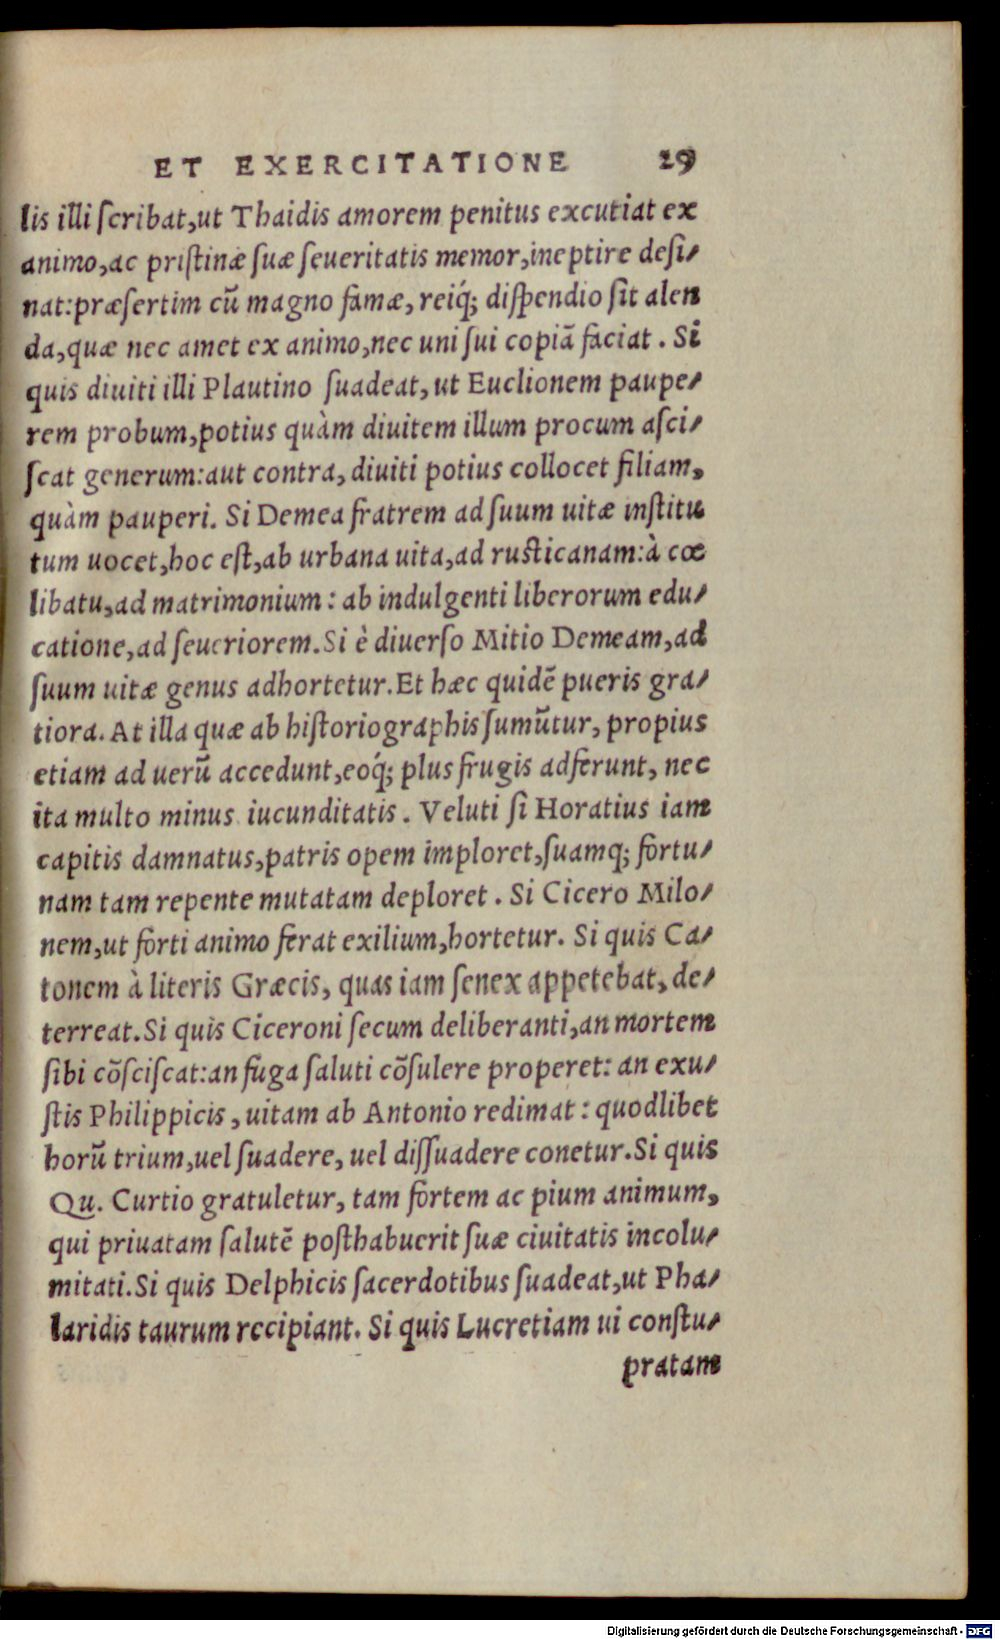 ET EXERCITATIONE 29
lis illi ſcribat,ut Thaidis amorem penitus excutiat ex
animo,ac priſtinæ ſuæ ſeueritatis memor,ineptire deſi⸗
nat:præſertim cū magno famæ, reiq́; diſpendio ſit alen
da,quæ nec amet ex animo,nec uni ſui copiā faciat . Si
quis diuiti illi Plautino ſuadeat, ut Euclionem paupe⸗
rem probum,potius quàm diuitem illum procum aſci⸗
ſcat generum:aut contra, diuiti potius collocet filiam,
quàm pauperi. Si Demea fratrem ad ſuum uitæ inſtitu
tum uocet,hoc eſt,ab urbana uita,ad ruſticanam:à cœ
libatu,ad matrimonium : ab indulgenti liberorum edu⸗
catione,ad ſeueriorem.Si è diuerſo Mitio Demeam,ad
ſuum uitæ genus adhortetur.Et hæc quidē pueris gra⸗
tiora. At illa quæ ab hiſtoriographis ſumūtur, propius
etiam ad uerū accedunt,eoq́; plus frugis adferunt, nec
ita multo minus iucunditatis . Veluti ſi Horatius iam
capitis damnatus,patris opem imploret,ſuamq; fortu⸗
nam tam repente mutatam deploret . Si Cicero Milo⸗
nem,ut forti animo ferat exilium,hortetur. Si quis Ca⸗
tonem à literis Græcis, quas iam ſenex appetebat, de⸗
terreat.Si quis Ciceroni ſecum deliberanti,an mortem
ſibi cōſciſcat:an fuga ſaluti cōſulere properet: an exu⸗
ſtis Philippicis , uitam ab Antonio redimat : quodlibet
horū trium,uel ſuadere, uel diſſuadere conetur.Si quis
Qu. Curtio gratuletur, tam fortem ac pium animum,
qui priuatam ſalutē poſthabuerit ſuæ ciuitatis incolu⸗
mitati.Si quis Delphicis ſacerdotibus ſuadeat,ut Pha⸗
laridis taurum recipiant. Si quis Lucretiam ui conſtu⸗
pratam
Digitalisierung gefördert durch die Deutsche Forschungsgemeinschaft - DFG